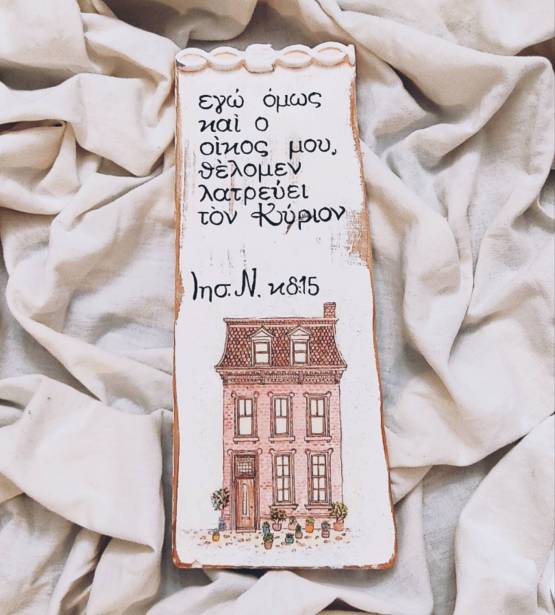 εγώ όμως
καὶ ο
οὶκος μου,
θὲλομεν
λατρεύει
τὸν Κύριον
Ιησ. Ν. κδ:15